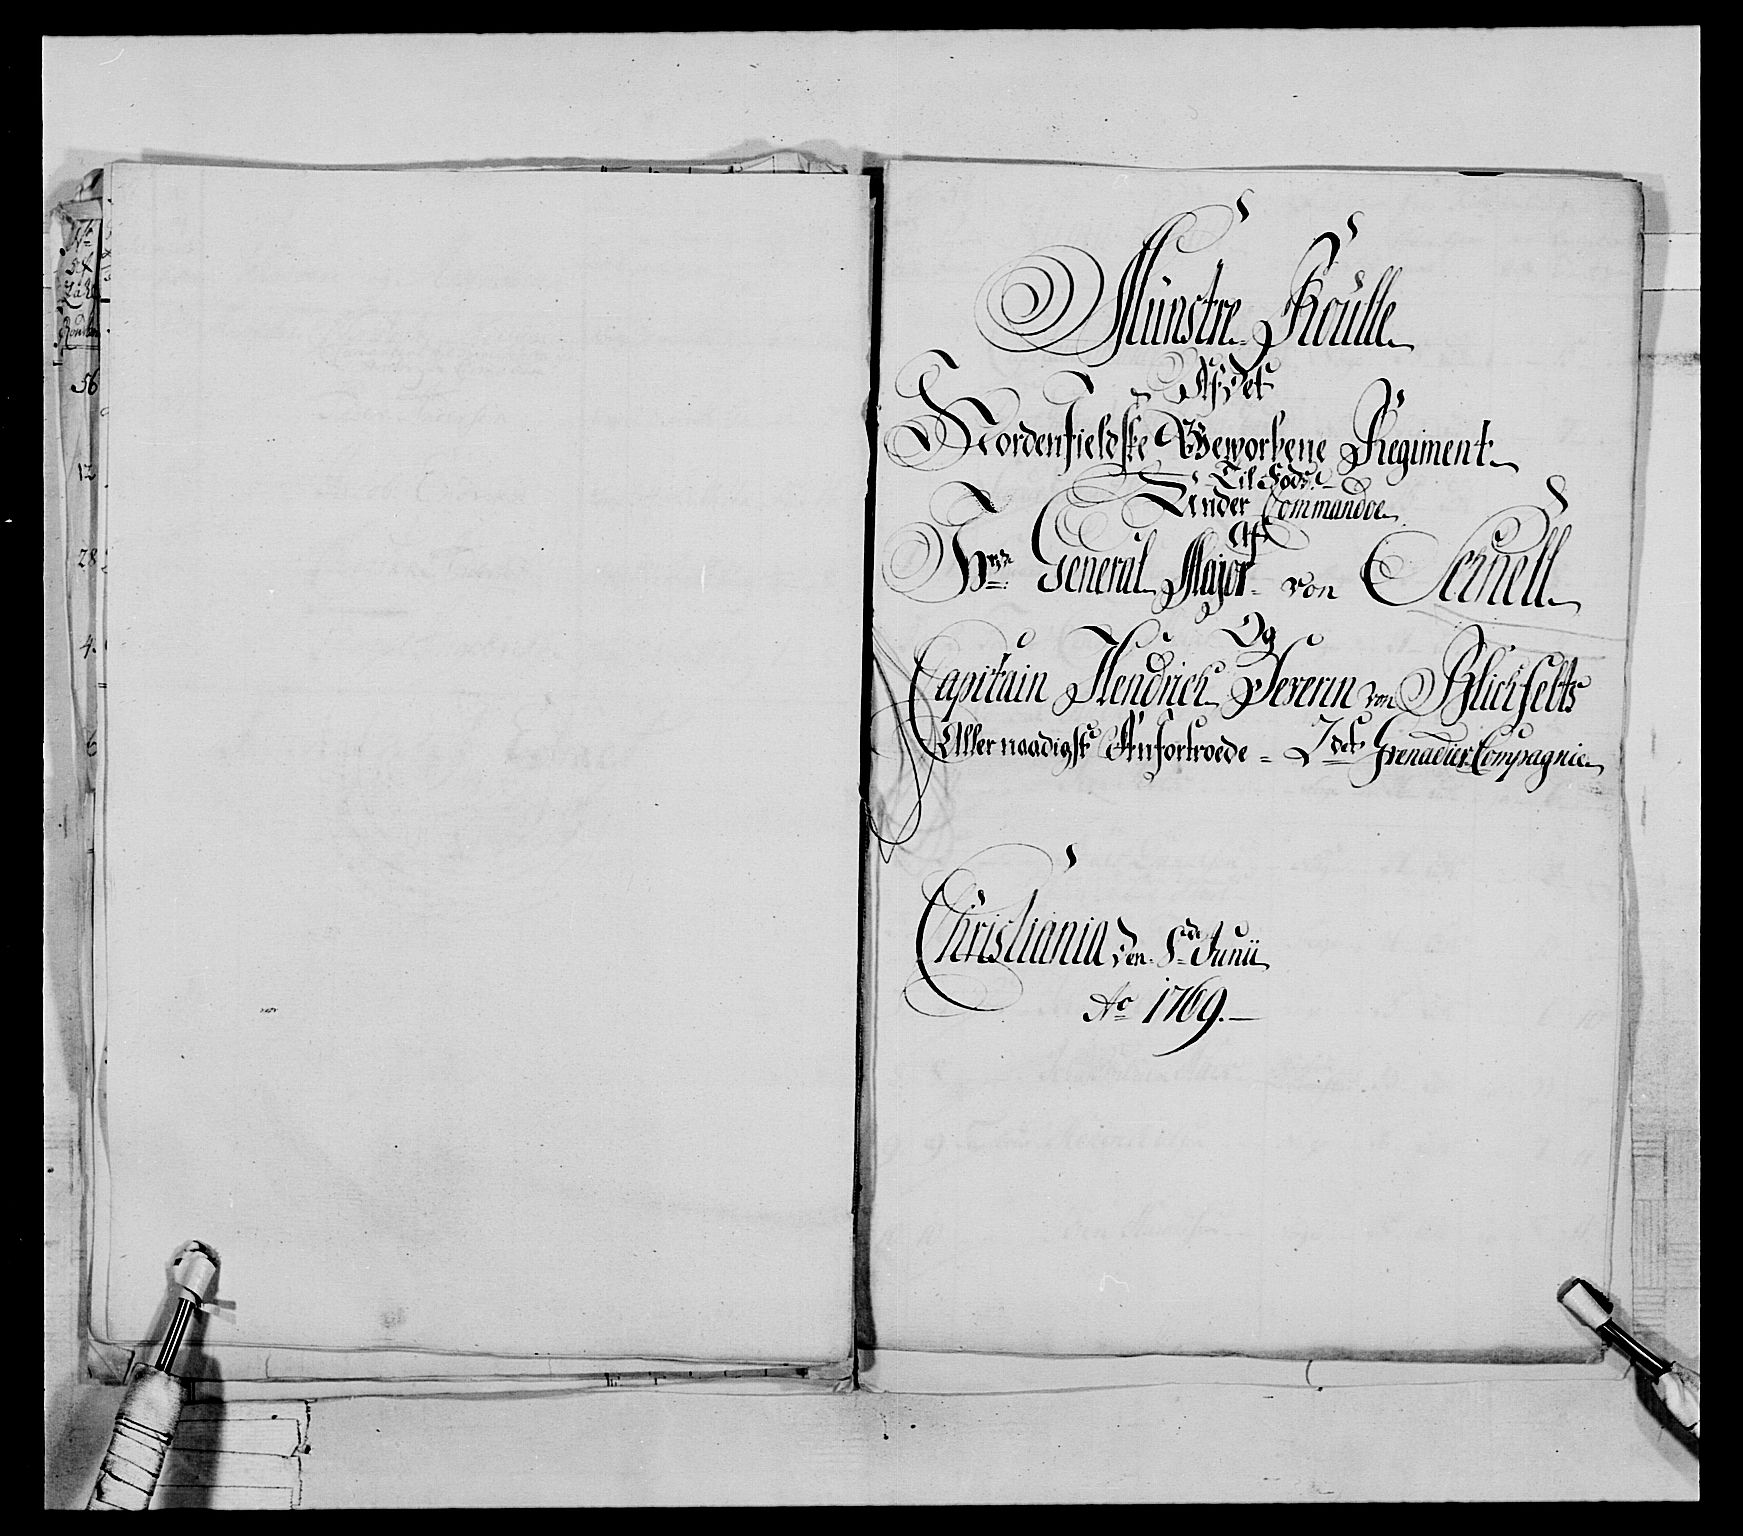 Nr
54
56
12
28
4
6
Münstre Roülle
Af det
Nordenfieldske Geworbene Regiment
Til Fods
Under Commandoe
Af
Hrr General Major von Schnell
Og
Capitain Hendrich Severin von Blichfelts
Aller naadigst Anfortroede 2det Grenadier Compagnie
Christiania den 8de Junii
Ao 1769.